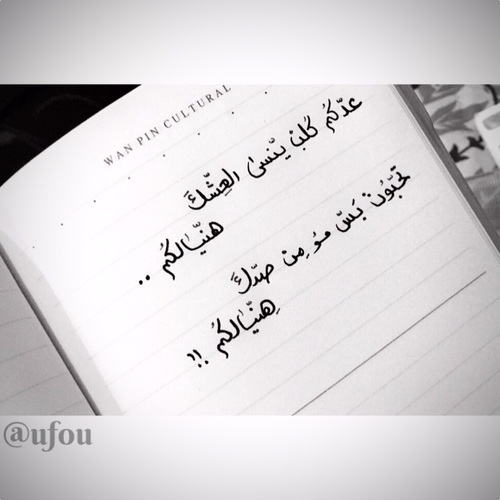 WAN PIN CULTURAL
عدّكم گلب ينسىٰ العِشّگ
هنيّالكُم ..
تحبّون بَسّ مو مِن صدّگ
هِنيّالكُم !!
@ufou